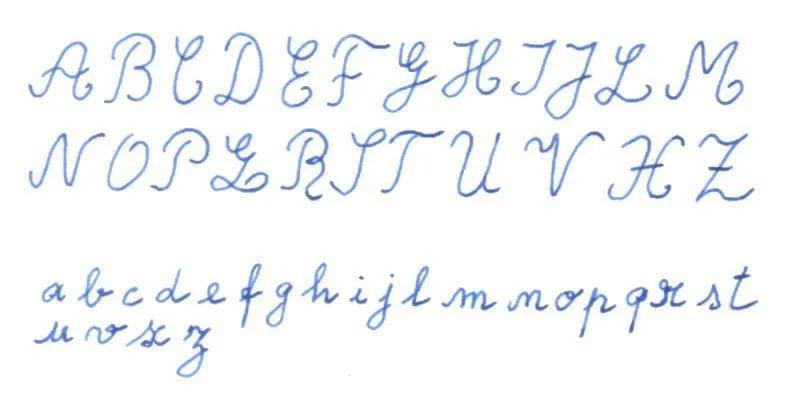 A B C D E F G H I J L M
N O P Q R S T U V X Z
a b c d e f g h i j l m n o p q r s t
u v x z